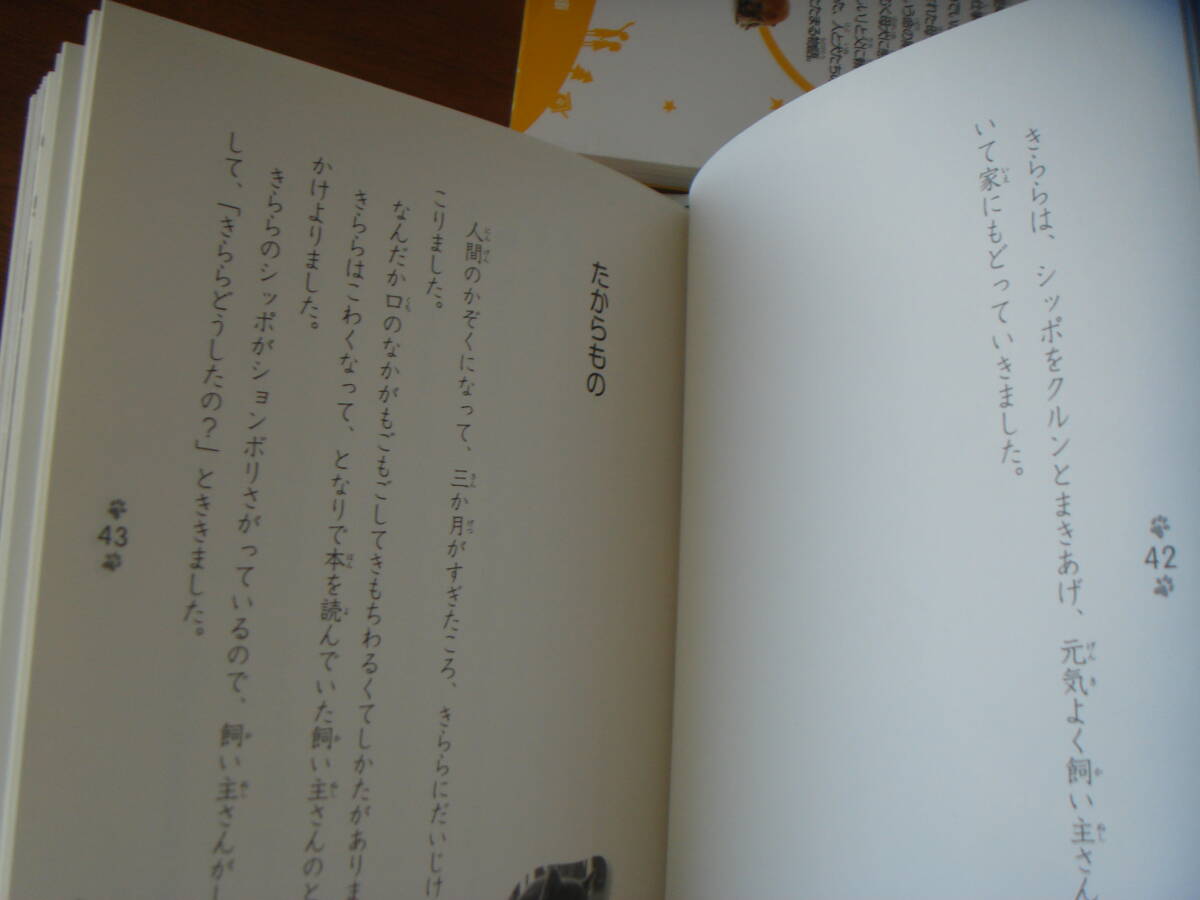 きららは、シッポをクルンとまきあげ、元気よく飼い主さん
いて家にもどっていきました。
42
たからもの
人間のかぞくになって、三か月がすぎたころ、きららにだいじけ
こりました。
なんだか口のなかがもごもごしてきもちわるくてしかたがありま
きららはこわくなって、となりで本を読んでいた飼い主さんのと
かけよりました。
きららのシッポがションボリさがっているので、飼い主さんがし
して、「きららどうしたの？」とききました。
43